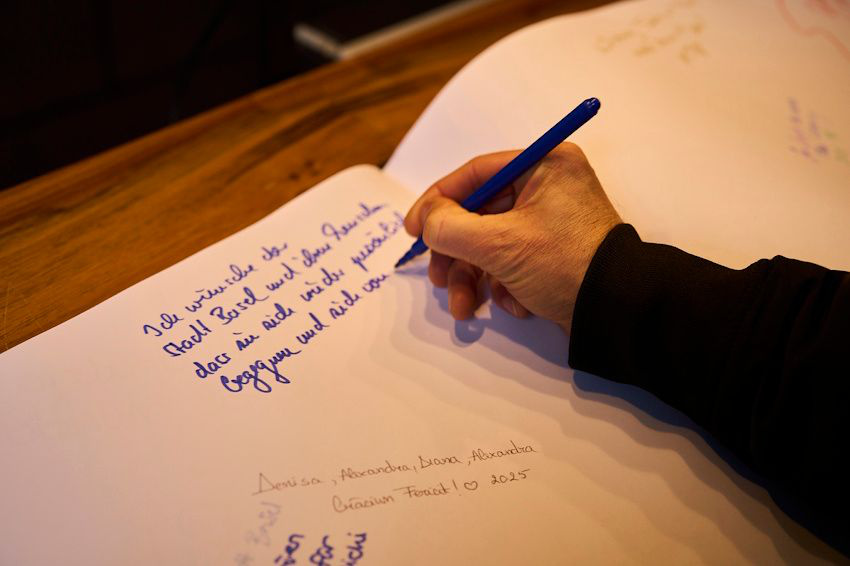 Ich wünsche der
Stadt Basel und ihren Menschen
dass sie sich wieder persönlich
begegnen und sich von
Denisa, Alexandra, Diana, Alexandra
Crăciun Fericit! ♡ 2025
für